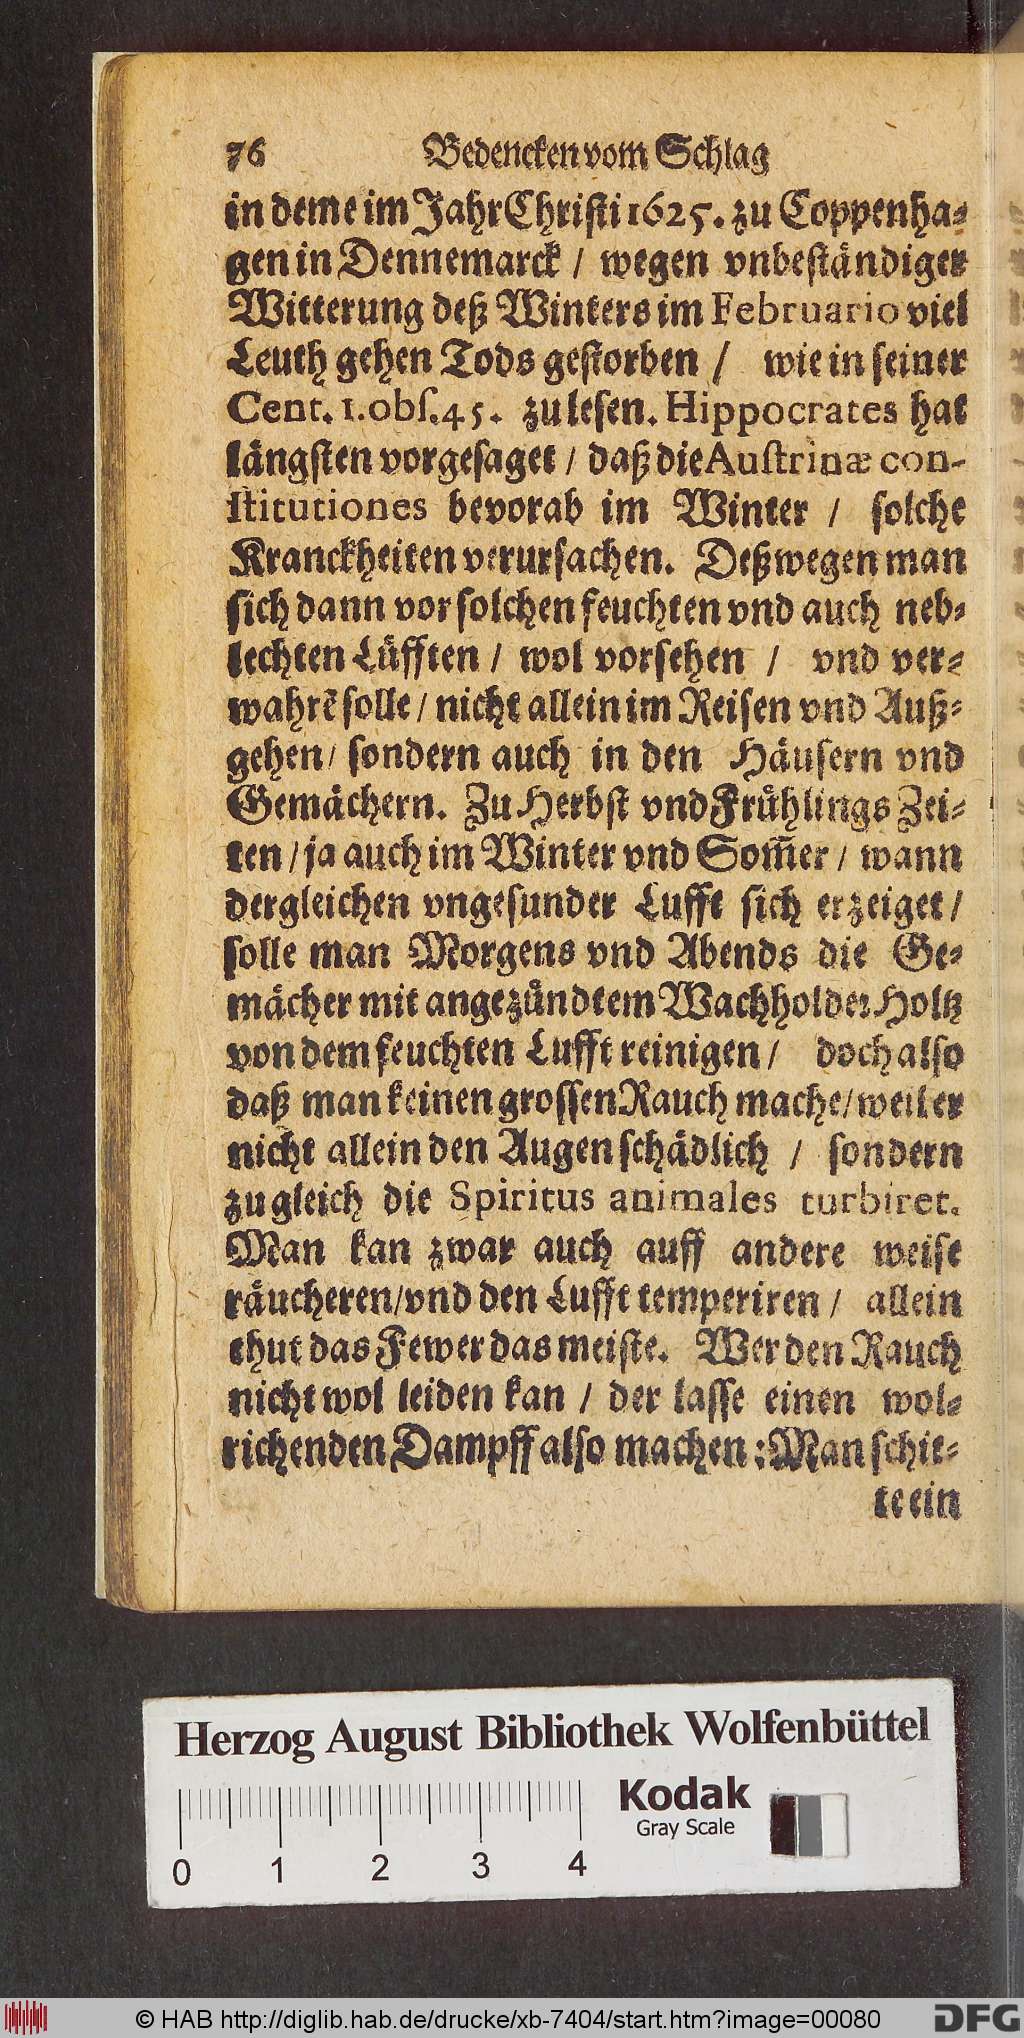 76 Bedencken vom Schlag
in deme im Jahr Christi 1625. zu Coppenha-
gen in Dennemarck / wegen vnbeständiger
Witterung deß Winters im Februario viel
Leuth gehen Tods gestorben / wie in seiner
Cent. 1. obſ. 45. zu lesen. Hippocrates hat
längsten vorgesaget / daß die Auſtrinæ con-
ſtitutiones bevorab im Winter / solche
Kranckheiten verursachen. Deßwegen man
sich dann vor solchen feuchten vnd auch neb-
lechten Lüfften / wol vorsehen / vnd ver-
wahrē solle / nicht allein im Reisen vnd Auß-
gehen / sondern auch in den Häusern vnd
Gemächern. Zu Herbst vnd Frühlings Zei-
ten / ja auch im Winter vnd Som̄er / wann
dergleichen vngesunder Lufft sich erzeiget /
solle man Morgens vnd Abends die Ge-
mächer mit angezündtem Wachholder Holtz
von dem feuchten Lufft reinigen / doch also
daß man keinen grossen Rauch mache / weil er
nicht allein den Augen schädlich / sondern
zu gleich die Spiritus animales turbiret.
Man kan zwar auch auff andere weise
räucheren / vnd den Lufft temperiren / allein
thut das Fewer das meiste. Wer den Rauch
nicht wol leiden kan / der lasse einen wol-
richenden Dampff also machen: Man schit-
te ein
Herzog August Bibliothek Wolfenbüttel
Kodak
Gray Scale
0 1 2 3 4
© HAB http://diglib.hab.de/drucke/xb-7404/start.htm?image=00080
DFG